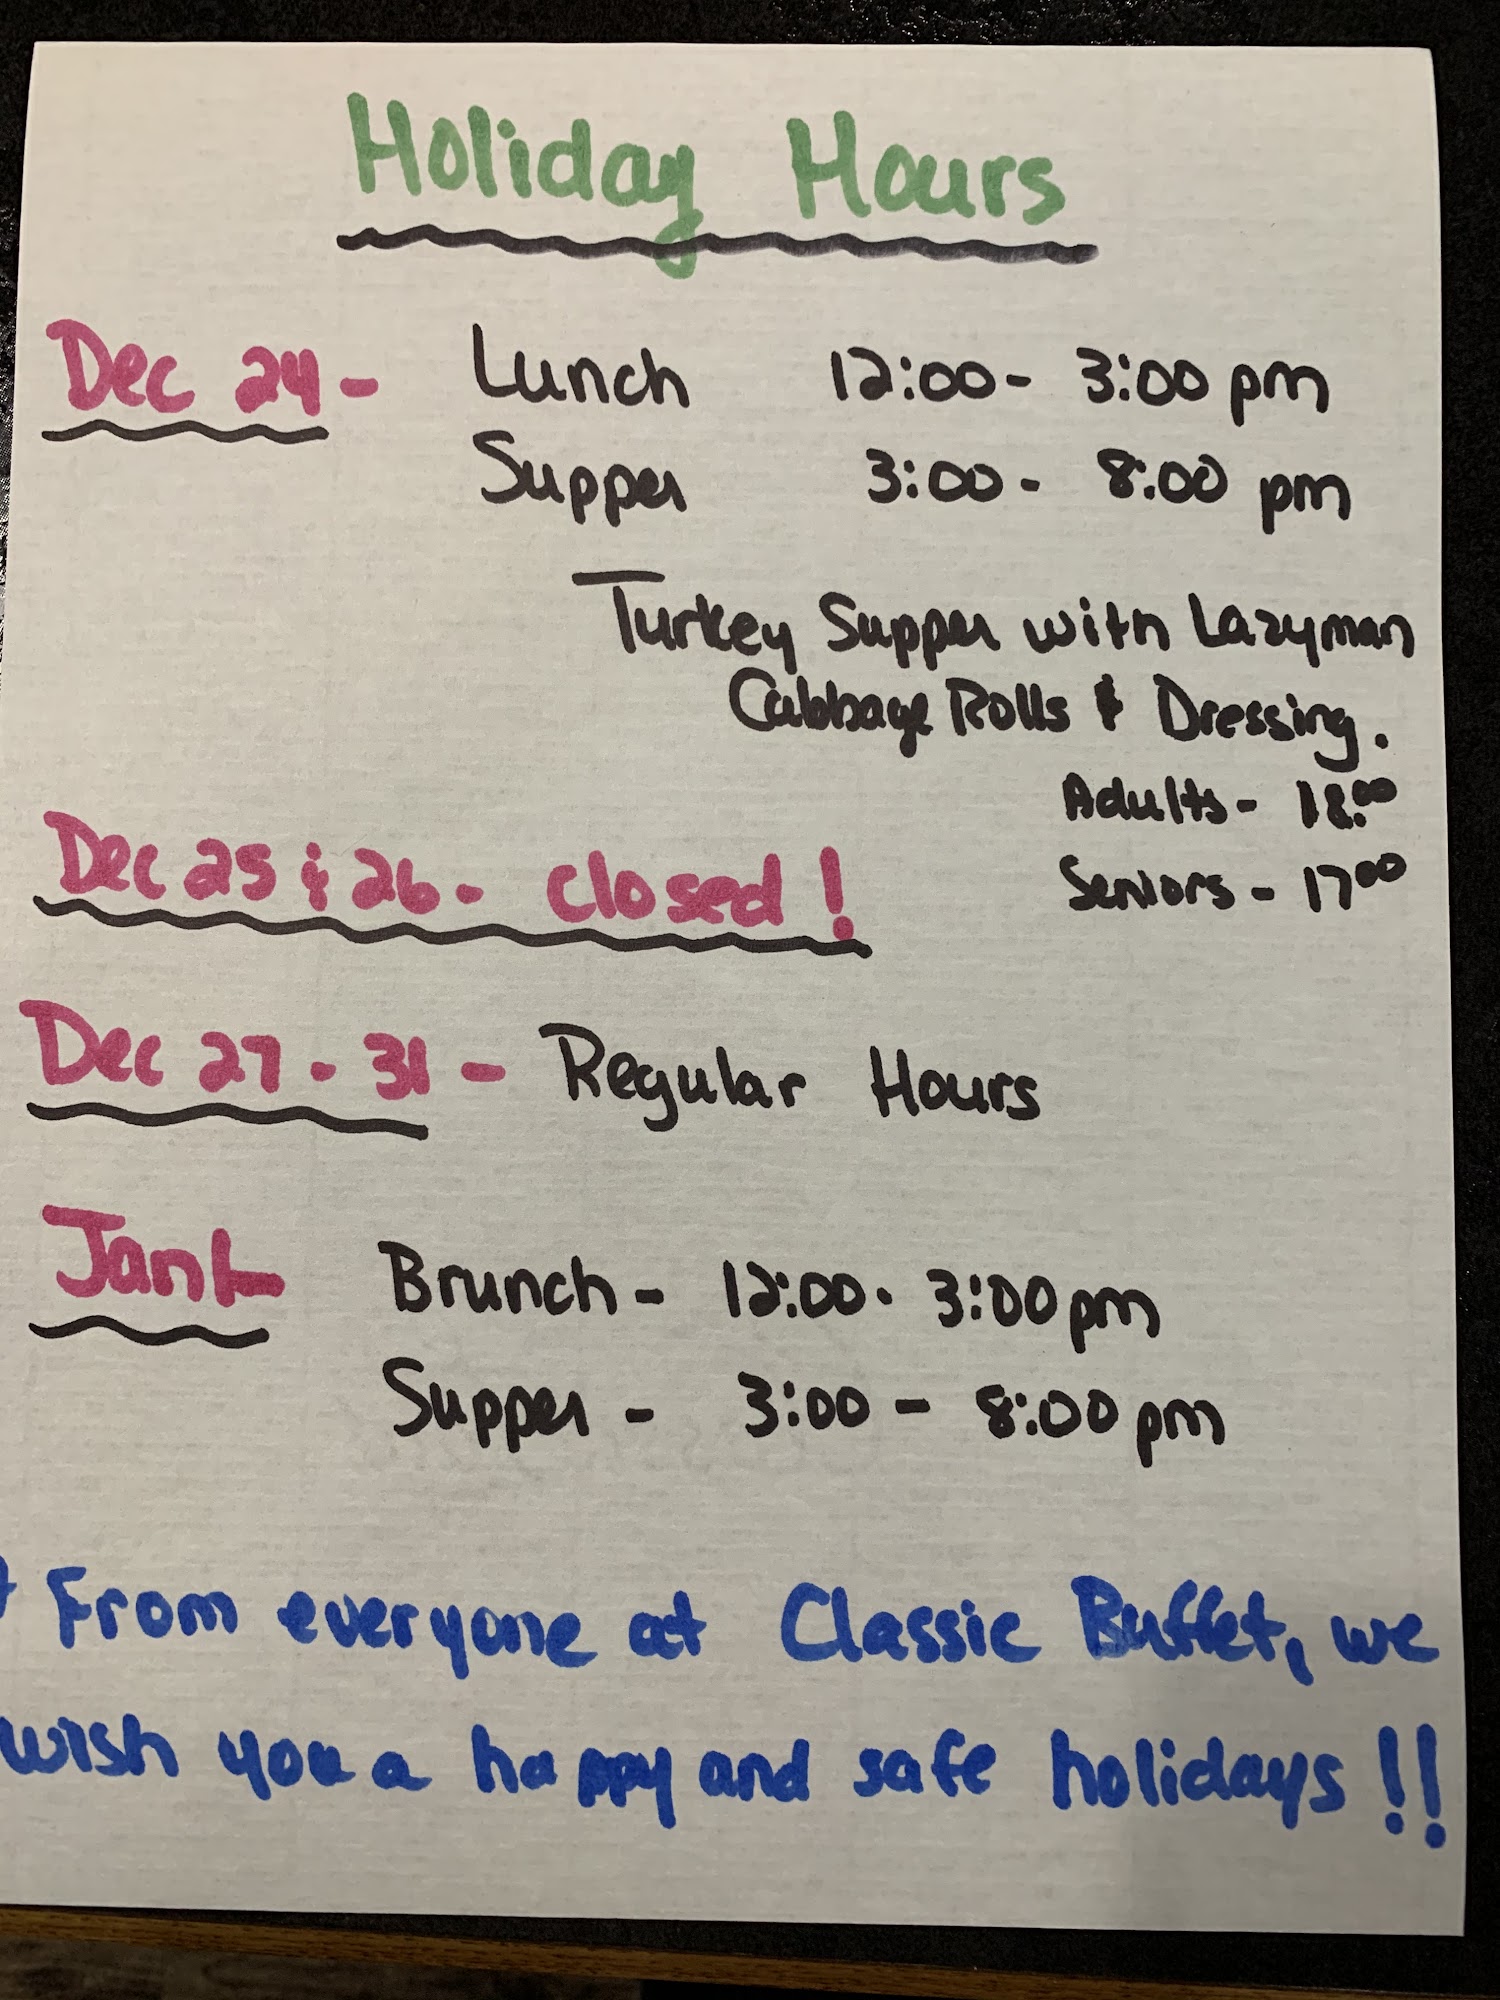 Holiday Hours
Dec 24 - Lunch 12:00 - 3:00 pm
Supper 3:00 - 8:00 pm
Turkey Supper with Lazyman
Cabbage Rolls & Dressing.
Adults - 18.00
Seniors - 17.00
Dec 25 & 26 - Closed!
Dec 27 - 31 - Regular Hours
Jan 1 - Brunch - 12:00 - 3:00 pm
Supper - 3:00 - 8:00 pm
From everyone at Classic Buffet, we
wish you a happy and safe holidays!!